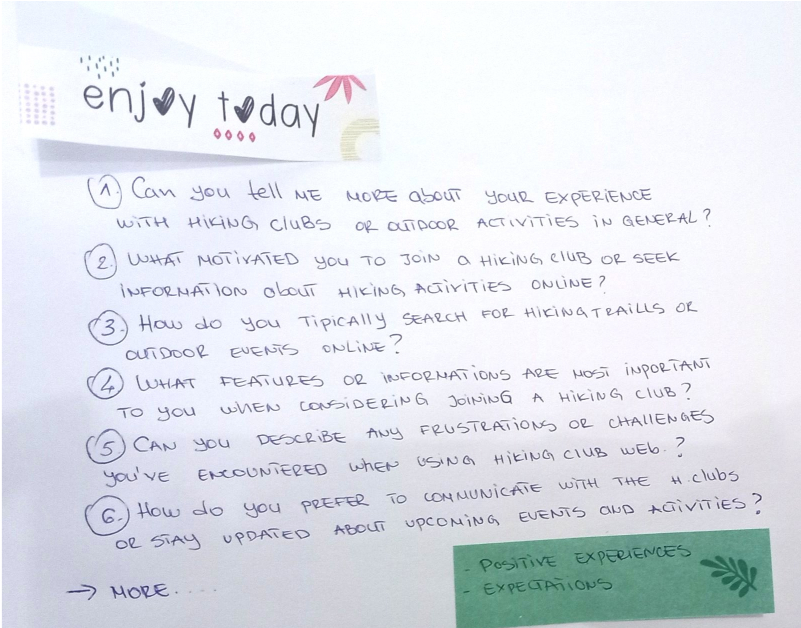 enjoy today
1. Can you tell ME MORE about YOUR EXPERIENCE
WITH HIKING CLUBS OR OUTDOOR ACTIVITIES IN GENERAL?
2. WHAT MOTIVATED YOU TO JOIN a HIKING CLUB OR SEEK
INFORMATION about HIKING ACTIVITIES ONLINE?
3. How do you TIPICALLY SEARCH FOR HIKING TRAILLS OR
OUTDOOR EVENTS ONLINE?
4. WHAT FEATURES OR INFORMATIONS ARE MOST INPORTANT
TO YOU WHEN CONSIDERING JOINING A HIKING CLUB?
5. CAN YOU DESCRIBE ANY FRUSTRATIONS OR CHALLENGES
YOU'VE ENCOUNTERED WHEN USING HIKING CLUB WEB.?
6. How do you PREFER TO COMMUNICATE WITH THE H.clubs
OR STAY UPDATED ABOUT UPCOMING EVENTS and ACTIVITIES?
- POSITIVE EXPERIENCES
- EXPECTATIONS
→ MORE.....